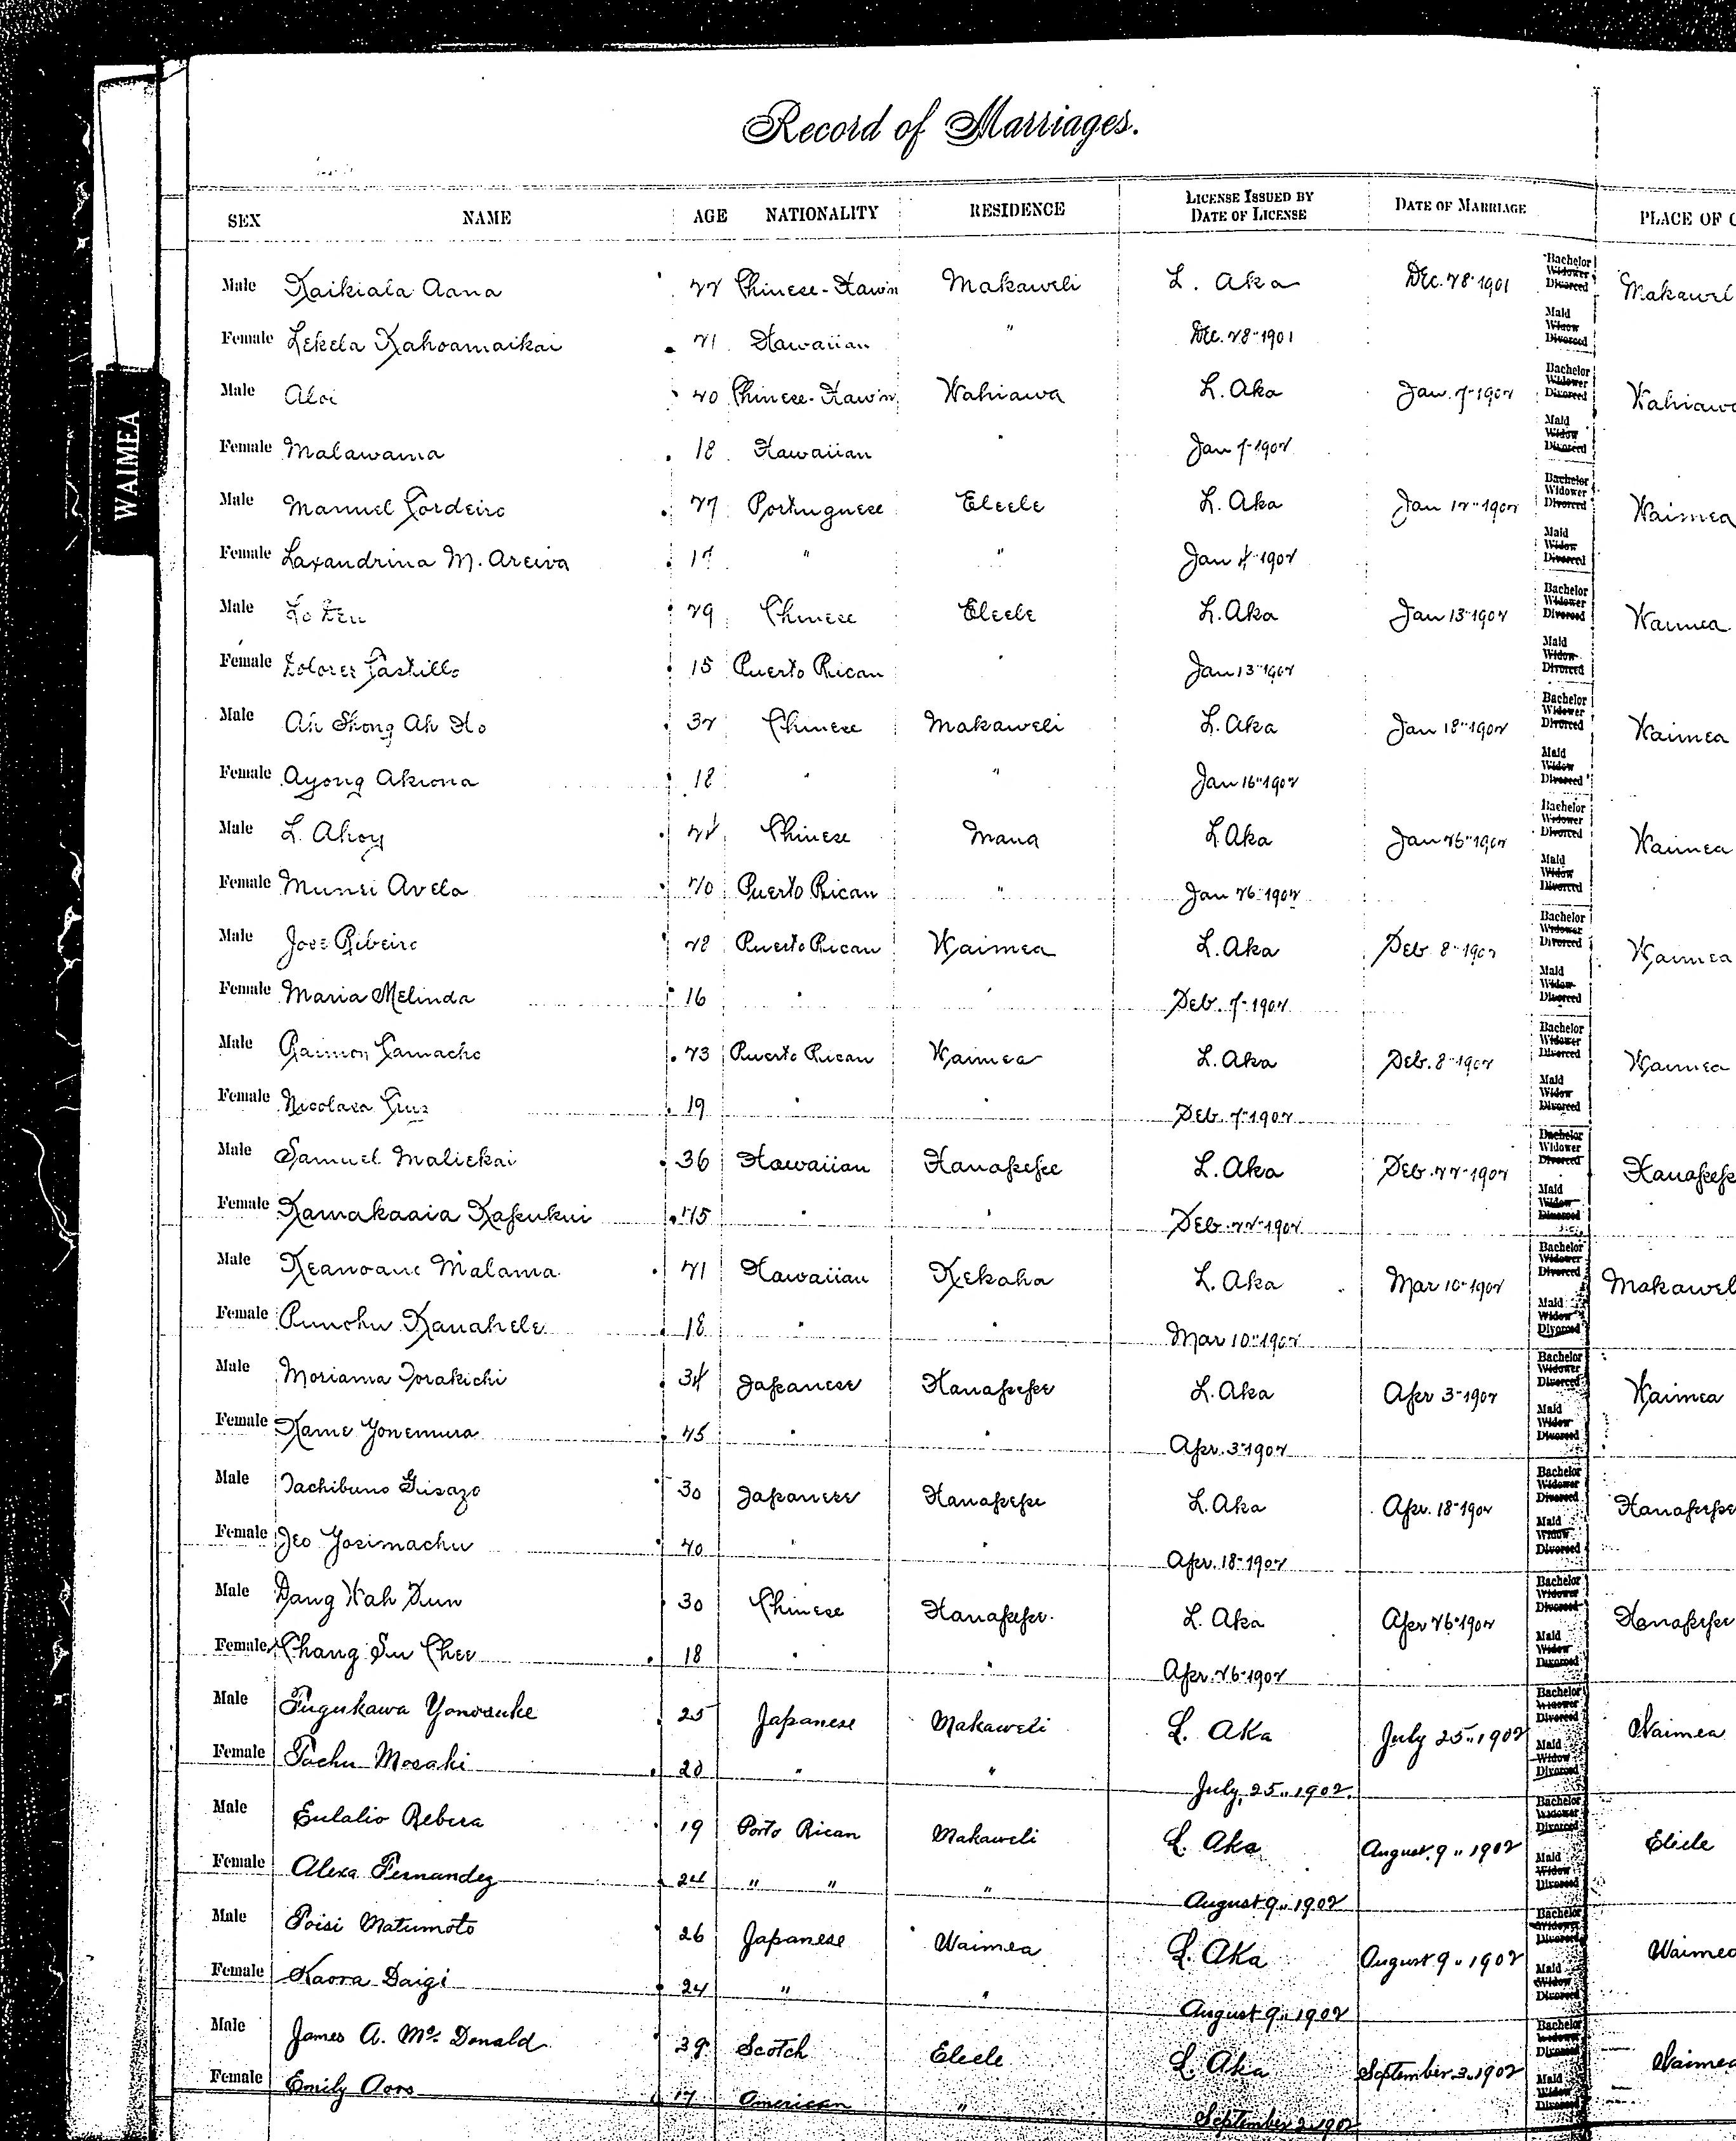 Record of Marriages.
SEX NAME AGE NATIONALITY RESIDENCE LICENSE ISSUED BY DATE OF LICENSE DATE OF MARRIAGE PLACE OF C
WAIMEA
Male Kaikiala Aana 22 Chinese-Haw'n Makaweli L. Aka Dec. 28-1901 Bachelor Widower Divorced Makawel
Female Lekela Kahoamaikai 21 Hawaiian " Dec. 28-1901 Maid Widow Divorced
Male Aloi 20 Chinese-Haw'n Wahiawa L. Aka Jan. 7-1902 Bachelor Widower Divorced Wahiawa
Female Malawama 18 Hawaiian " Jan 7-1902 Maid Widow Divorced
Male Manuel Cordeiro 27 Portuguese Eleele L. Aka Jan 12-1902 Bachelor Widower Divorced Waimea
Female Laxandrina M. Areiva 17 " " Jan 4-1902 Maid Widow Divorced
Male 29 Chinese Eleele L. Aka Jan 13-1902 Bachelor Widower Divorced Waimea
Female Dolores Castillo 15 Puerto Rican " Jan 13-1902 Maid Widow Divorced
Male Ah Shong Ah Ho 32 Chinese Makaweli L. Aka Jan 18-1902 Bachelor Widower Divorced Waimea
Female Ayong Akiona 18 " " Jan 16-1902 Maid Widow Divorced
Male L. Ahoy Chinese Mana L. Aka Jan 26-1902 Bachelor Widower Divorced Waimea
Female Munsi Avela 20 Puerto Rican " Jan 26-1902 Maid Widow Divorced
Male Jose Ribeiro 28 Puerto Rican Waimea L. Aka Feb 8-1902 Bachelor Widower Divorced Waimea
Female Maria Melinda 16 " " Feb. 7-1902 Maid Widow Divorced
Male Raimon Camacho 23 Puerto Rican Waimea L. Aka Feb. 8-1902 Bachelor Widower Divorced Waimea
Female Nicolasa Cruz 19 " " Feb. 7-1902 Maid Widow Divorced
Male Samuel Maliekai 36 Hawaiian Hanapepe L. Aka Feb. 22-1902 Bachelor Widower Divorced Hanapepe
Female Kamakaaia Kapukui 25 " " Feb. 22-1902 Maid Widow Divorced
Male Keanoane Malama 21 Hawaiian Kekaha L. Aka Mar 10-1902 Bachelor Widower Divorced Makawel
Female Punohu Kanahele 18 " " Mar 10-1902 Maid Widow Divorced
Male Moriama Torakichi 34 Japanese Hanapepe L. Aka Apr 3-1902 Bachelor Widower Divorced Waimea
Female Kame Yonemura 25 " " Apr. 3-1902 Maid Widow Divorced
Male Tachibuno Gisazo 30 Japanese Hanapepe L. Aka Apr. 18-1902 Bachelor Widower Divorced Hanapepe
Female Jeo Yosimachu 20 " " Apr. 18-1902 Maid Widow Divorced
Male Dang Wah Dun 30 Chinese Hanapepe L. Aka Apr 26-1902 Bachelor Widower Divorced Hanapepe
Female Chang Su Chee 18 " " Apr. 26-1902 Maid Widow Divorced
Male Fugukawa Yonosuke 25 Japanese Makaweli L. Aka July 25, 1902 Bachelor Widower Divorced Waimea
Female Tachu Mosaki 20 " " July, 25, 1902. Maid Widow Divorced
Male Eulalio Rebera 19 Porto Rican Makaweli L. Aka August 9, 1902 Bachelor Widower Divorced Eleele
Female Alexa Fernandez 24 " " " August 9, 1902 Maid Widow Divorced
Male Toisi Matumoto 26 Japanese Waimea L. Aka August 9, 1902 Bachelor Widower Divorced Waimea
Female Kaora Daigi 24 " " August 9, 1902 Maid Widow Divorced
Male James A. McDonald 39 Scotch Eleele L. Aka September 3, 1902 Bachelor Widower Divorced Waimea
Female Emily 17 American " September 2, 1902 Maid Widow Divorced